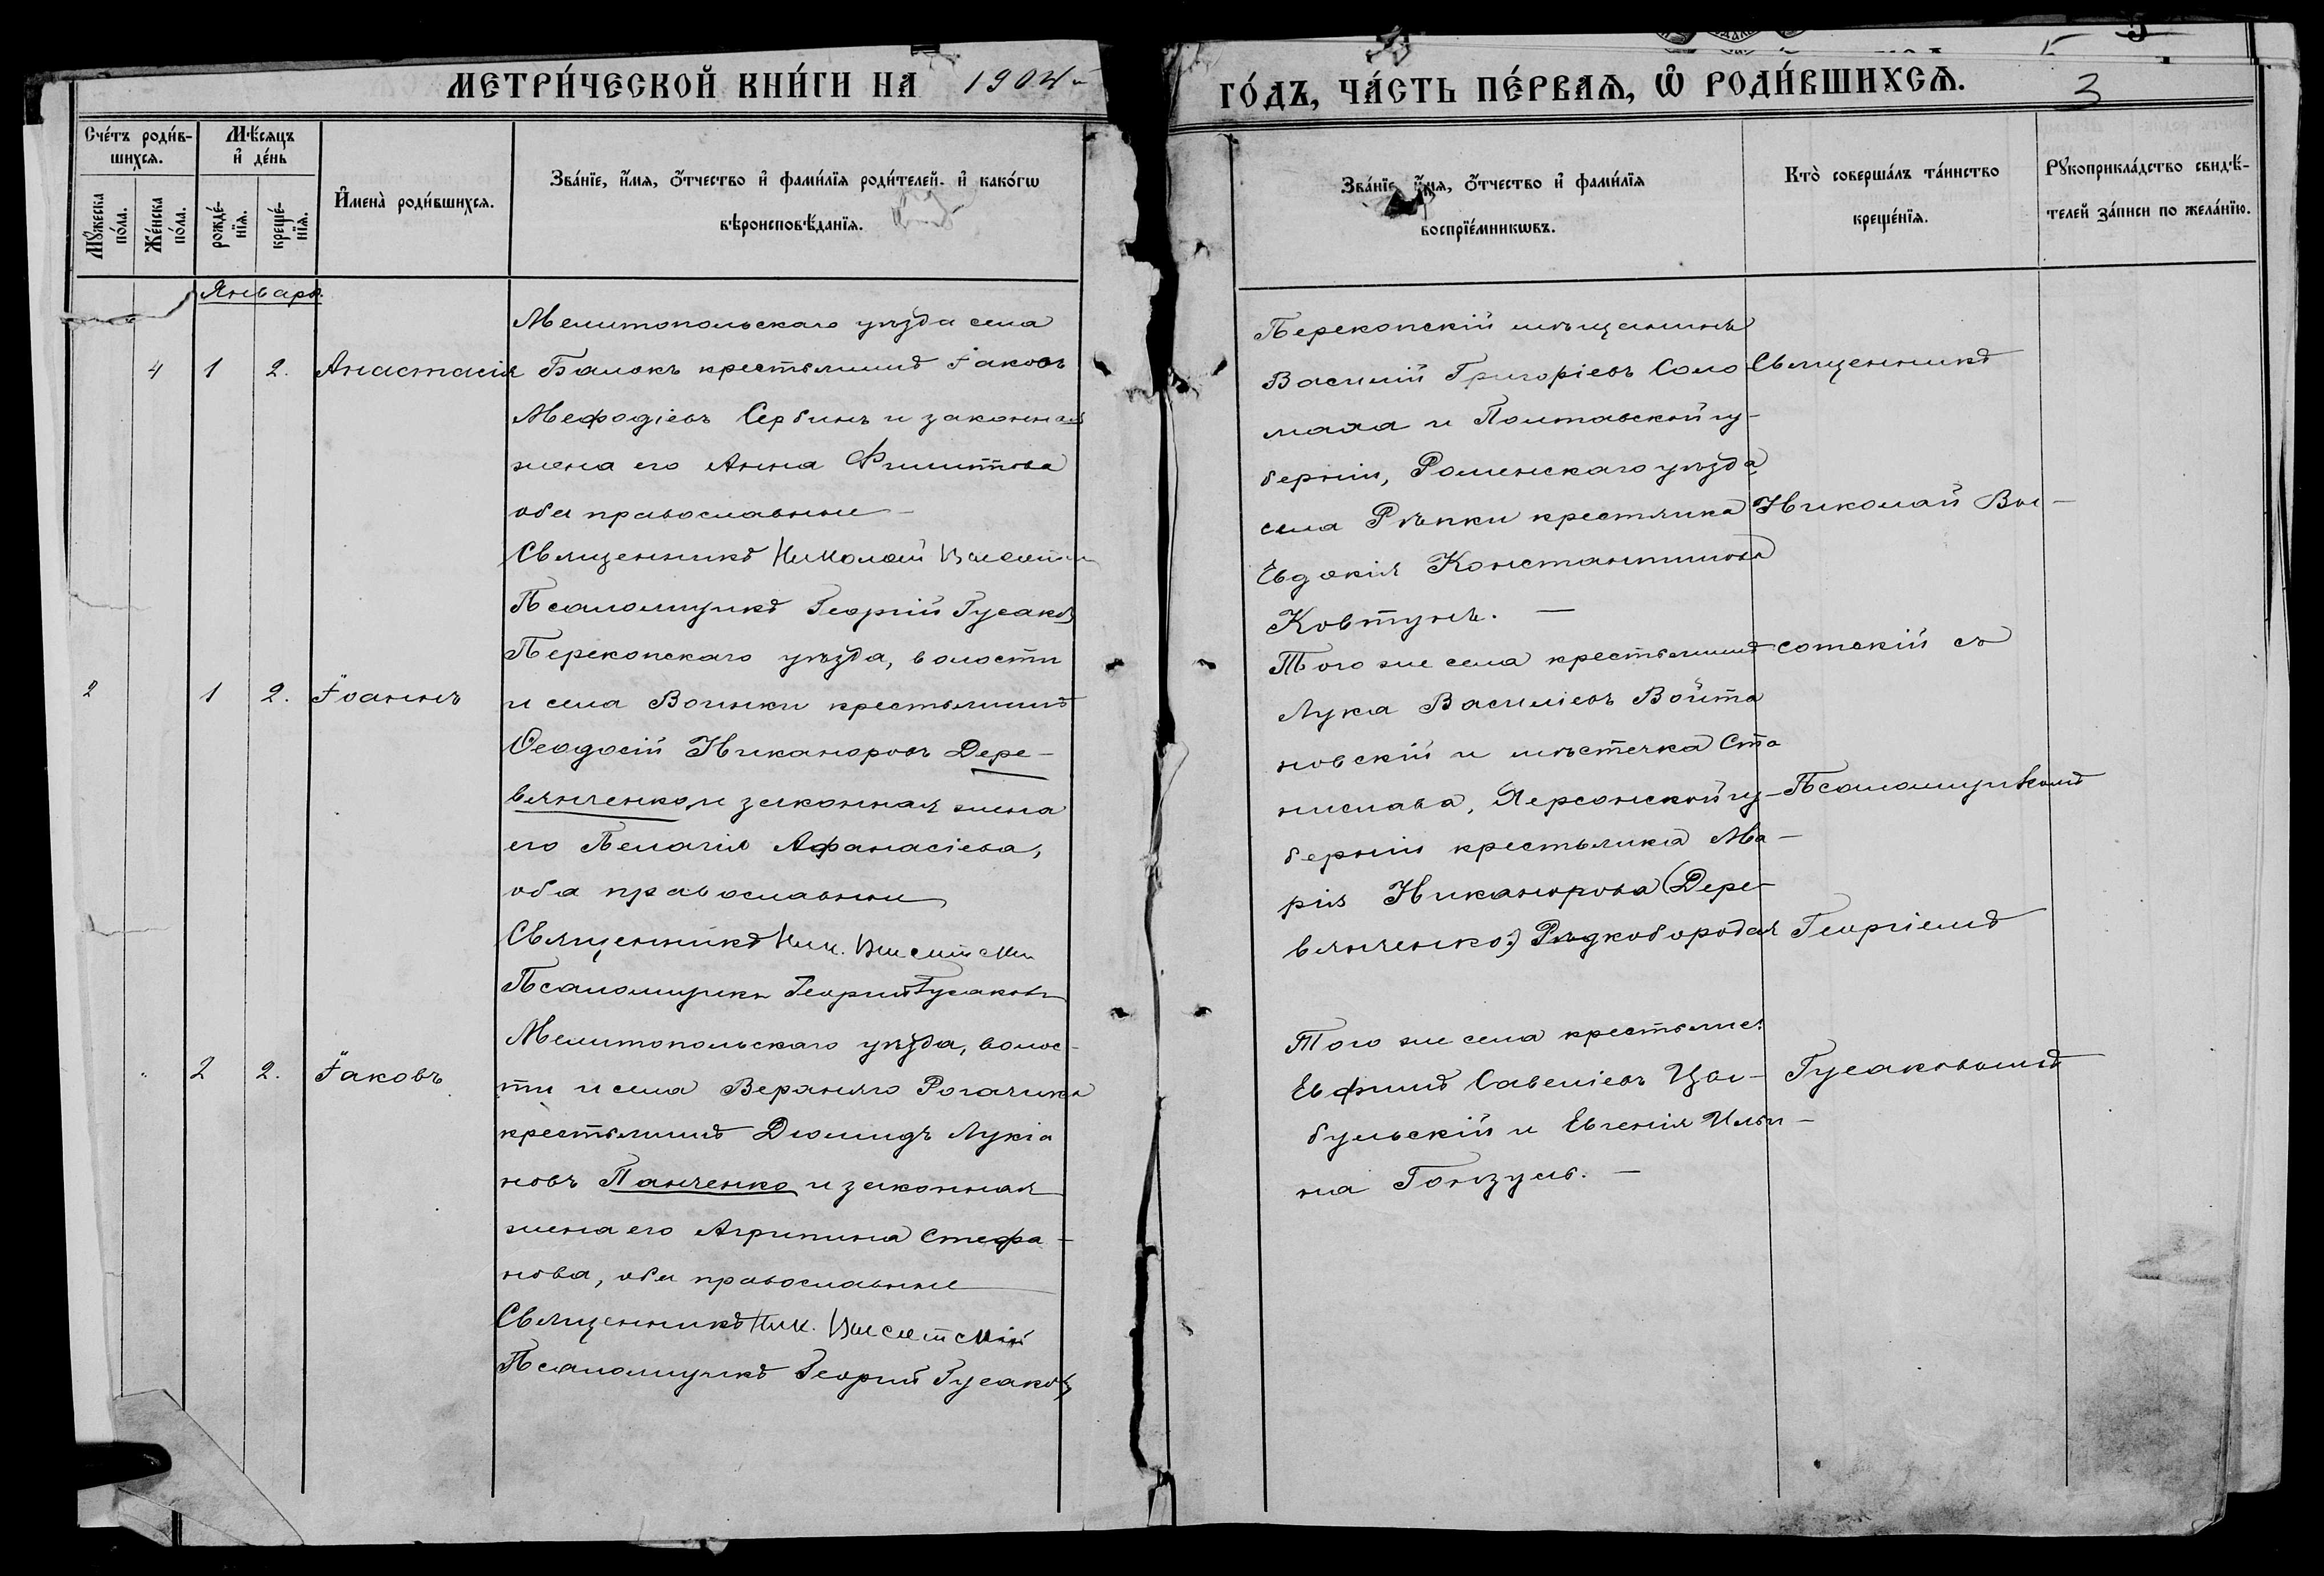 МЕТРИ́ЧЕСКОЙ КНИ́ГИ НА 1904
ГО́ДЪ, ЧА́СТЬ ПЕ́РВАѦ, Ѡ҆ РОДИ́ВШИХСѦ.
3
Сче́тъ роди́в-
шихсѧ.
Мѣ́сѧцъ
и҆ де́нь
Мꙋ́жеска
по́ла.
Же́нска
по́ла.
рожде́-
нїѧ.
креще́-
нїѧ.
И҆мена̀ роди́вшихсѧ.
Зва́нїе, и҆́мѧ, ѻ҆́тчество и҆ фами́лїѧ роди́телей. и҆ како́гѡ
вѣроисповѣ́данїѧ.
Зва́нїе, и҆́мѧ, ѻ҆́тчество и҆ фами́лїѧ
воспрїе́мникѡвъ.
Кто̀ соверша́лъ та́инство
креще́нїѧ.
Рꙋкоприкла́дство свидѣ́-
телей за́писи по жела́нїю.
Январь.
4 1 2. Анастасія
Мелитопольскаго уѣзда села
Балокъ крестьянинъ Іаковъ
Мефодіевъ Сербинъ и законная
жена его Анна Филиппова
оба православные
Священникъ Николай
Псаломщикъ Георгій Гусаковъ
Перекопскій мѣщанинъ
Василій Григоріевъ Соло
маха и Полтавской гу-
берніи, Роменскаго уѣзда
села Рѣпки крестьянка
Евдокія Константинова
Ковтунъ. —
Священникъ
Николай Вы-
сотскій съ
Псаломщикомъ
Георгіемъ
Гусаковымъ
2 1 2. Іоаннъ
Перекопскаго уѣзда, волости
и села Воинки крестьянинъ
Ѳеодосій Никаноровъ Дере-
вянченко и законная жена
его Пелагія Афанасіева,
оба православные
Священникъ Ник. Высотскій
Псаломщикъ Георгій Гусаковъ
Того же села крестьянинъ
Лука Василіевъ Войта
новскій и мѣстечка Ста
нислава, Херсонской гу-
берніи крестьянка Ма-
рія Никанорова (Дере-
вянченко) Рѣдкобородая
2 2. Іаковъ
Мелитопольскаго уѣзда, волос-
ти и села Верхняго Рогачика
крестьянинъ Діомидъ Лукіа
новъ Панченко и законная
жена его Агрипина Стефа-
нова, оба православные
Священникъ Ник. Высотскій
Псаломщикъ Георгій Гусаковъ
Того же села крестьяне:
Евфимъ Савеліевъ Цы-
бульскій и Евгенія Ильи-
на Гонзуль. —